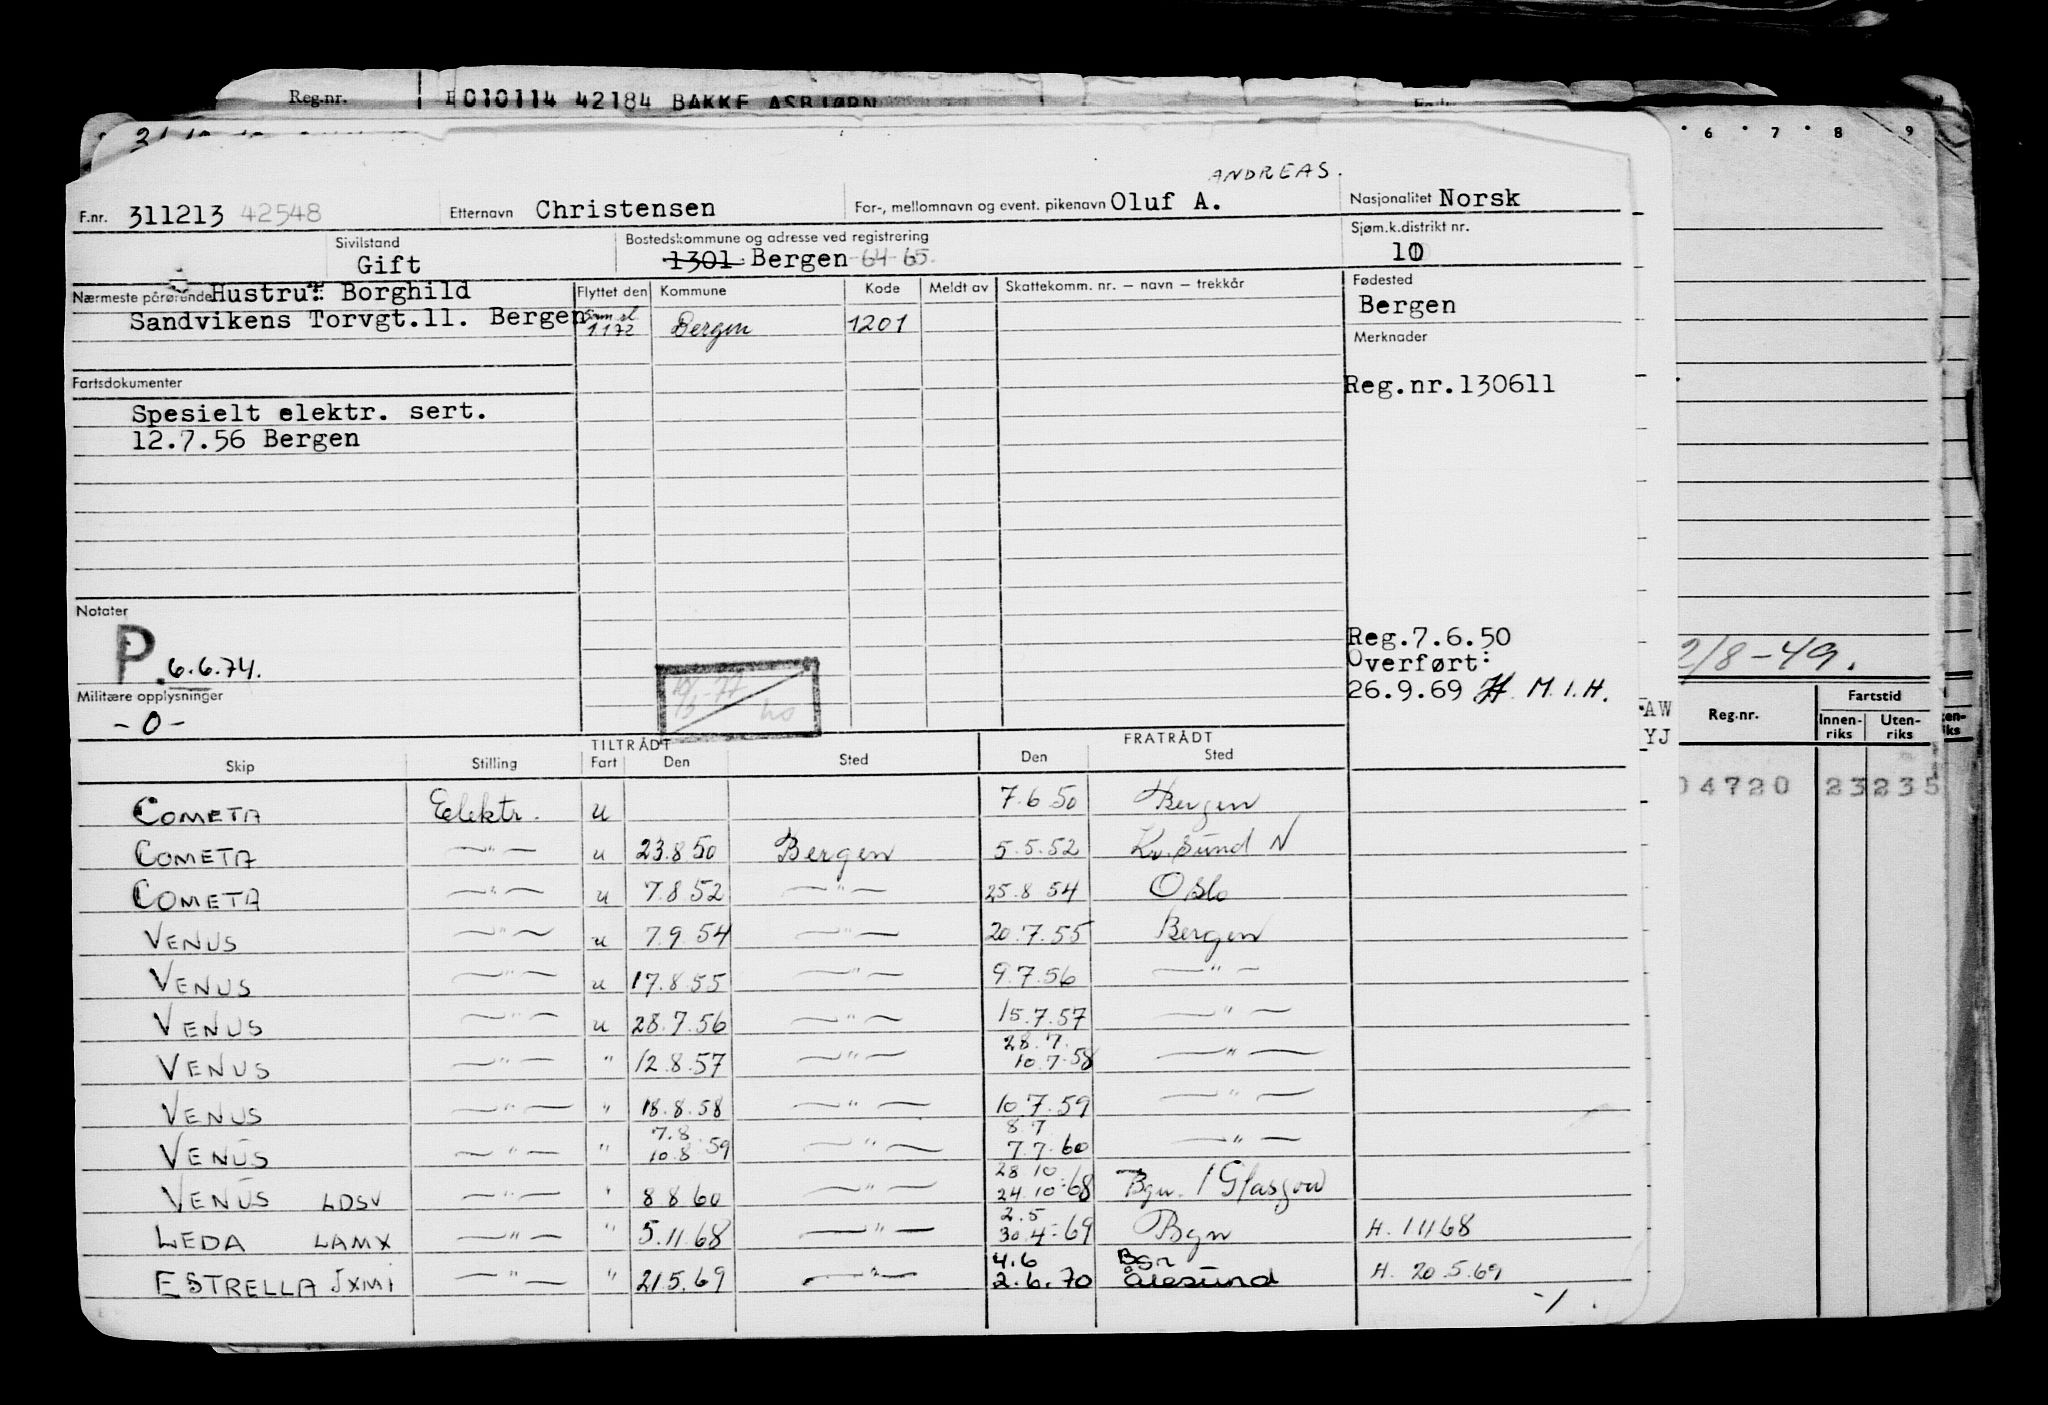 Reg.nr. 010114 42184 BAKKE ASBJØRN
6 7 8 9
ANDREAS.
F.nr. 311213 42548 Etternavn Christensen For-, mellomnavn og event. pikenavn Oluf A. Nasjonalitet Norsk
Sivilstand Gift Bostedskommune og adresse ved registrering 1301 Bergen 64-65 Sjøm.k.distrikt nr. 10
Nærmeste pårørende Hustru: Borghild Flyttet den Kommune Kode Meldt av Skattekomm. nr. — navn — trekkår Fødested
Bergen
Sandvikens Torvgt.11. Bergen 1.1.72 Bergen 1201
Merknader
Fartsdokumenter Reg.nr.130611
Spesielt elektr. sert.
12.7.56 Bergen
Notater
P. 6.6.74.
Reg.7.6.50
Overført:
26.9.69 H. M.I.H.
Militære opplysninger
-0-
2/8-49.
Reg.nr. Fartstid
Innen-riks Uten-riks
AW
YJ
04720 23235
TILTRÅDT FRATRÅDT
Skip Stilling Fart Den Sted Den Sted
COMETA Elektr. u 7.6.50 Bergen
COMETA —"— u 23.8.50 Bergen 5.5.52 Kr.sund N
COMETA —"— u 7.8.52 —"— 25.8.54 Oslo
VENUS —"— u 7.9.54 —"— 20.7.55 Bergen
VENUS —"— u 17.8.55 —"— 9.7.56 —"—
VENUS —"— u 28.7.56 —"— 15.7.57 —"—
VENUS —"— " 12.8.57 —"— 28.7. 10.7.58 —"—
VENUS —"— " 18.8.58 —"— 10.7.59 —"—
VENUS —"— " 7.8. 10.8.59 —"— 8.7 7.7.60 —"—
VENUS LDSV —"— " 8.8.60 —"— 28.10 24.10.68 Bgn. / Glasgow
LEDA LAMX —"— " 5.11.68 —"— 2.5 30.4-69 Bgn H. 1.11.68
ESTRELLA JXMI —"— " 21.5.69 —"— 4.6 2.6.70 Bgn Ålesund H. 20.5.69